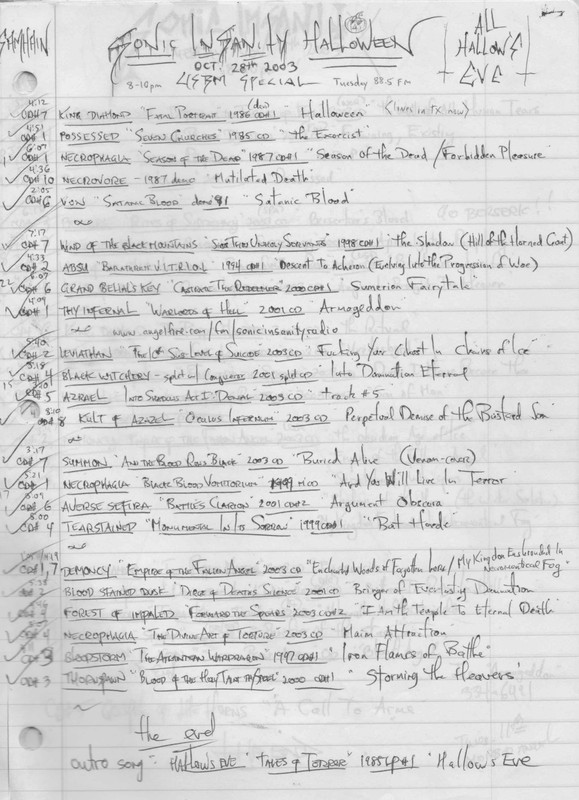 SAMHAIN
SONIC INSANITY HALLOWEEN
ALL HALLOW'S EVE
OCT. 28th 2003
8-10pm USBM SPECIAL Tuesday 88.5 FM
4:12 CD#7 KING DIAMOND "FATAL PORTRAIT" 1986 CD#1 "Halloween"
4:51 CD#1 POSSESSED "SEVEN CHURCHES" 1985 CD "the Exorcist"
6:07 CD#1 NECROPHAGIA "SEASON OF THE DEAD" 1987 CD#1 "Season of the Dead / Forbidden Pleasure"
4:36 CD#10 NECROVORE - 1987 demo "Mutilated Death"
2:05 CD#6 VON "SATANIC BLOOD" demo "Satanic Blood"
7:17 CD#7 WIND OF THE BLACK MOUNTAINS "SING THOU UNHOLY SERVANTS" 1998 CD#1 "the Shadow (Hill of the Horned Goat)
4:33 CD#2 ABSU "BARATHRUM: V.I.T.R.I.O.L." 1994 CD#1 "Descent To Acheron (Evolving Into the Progression of Woe)
CD#6 GRAND BELIAL'S KEY "CASTRATE THE REDEEMER" 2000 CD#1 "Sumerian Fairytale"
4:09 CD#1 THY INFERNAL "WARLORDS OF HELL" 2001 CD "Armageddon"
www.angelfire.com/fm/sonicinsanityradio
5:40 CD#2 LEVIATHAN "The 10th SUB LEVEL OF SUICIDE" 2003 CD "Fucking Your Ghost In Chains of Ice"
CD#4 BLACK WITCHERY - split w/ CONQUEROR 2001 split CD "Into Damnation Eternal
CD#5 AZRAEL "INTO SHADOWS ACT I: DENIAL" 2003 CD "track #5"
3:10 CD#8 KULT OF AZAZEL "OCULUS INFERNUM" 2003 CD "Perpetual Demise of the Bastard Son"
3:17 CD#7 SUMMON "AND THE BLOOD RUNS BLACK" 2003 CD "Buried Alive (VENOM-COVER)
5:21 CD#1 NECROPHAGIA "BLACK BLOOD VOMITORIUM" MCD "And You Will Live In Terror
5:09 CD#6 AVERSE SEFIRA "BATTLE'S CLARION" 2001 CD#2 "Argument Obscura
5:00 CD#4 TEARSTAINED "MONUMENTAL IN ITS SORROW" 1999 CD#1 "Bat Horde"
CD#1,7 DEMONCY "EMPIRE OF THE FALLEN ANGEL" 2003 CD "Enchanted Woods of Forgotten Lore / My Kingdom Enshrouded In Necromantical Fog"
BLOOD STAINED DUSK "DIRGE OF DEATH'S SILENCE" 2001 CD "Bringer of Everlasting Damnation
FOREST OF IMPALED "FORWARD THE SPEARS" 2003 CD#2 "I Am the Temple To Eternal Death"
CD#4 NECROPHAGIA "THE DIVINE ART OF TORTURE" 2003 CD "Maim Attraction"
CD#3 BLOODSTORM "THE ATLANTEAN WARDRAGON" 1997 CD#1 "Iron Flames of Battle"
CD#3 THORNSPAWN "BLOOD OF THE HOLY TAINT THY STEEL" 2000 CD#1 "Storming the Heavens"
the end
outro song - HALLOWS EVE "TALES OF TERROR" 1985 LP#1 "Hallow's Eve